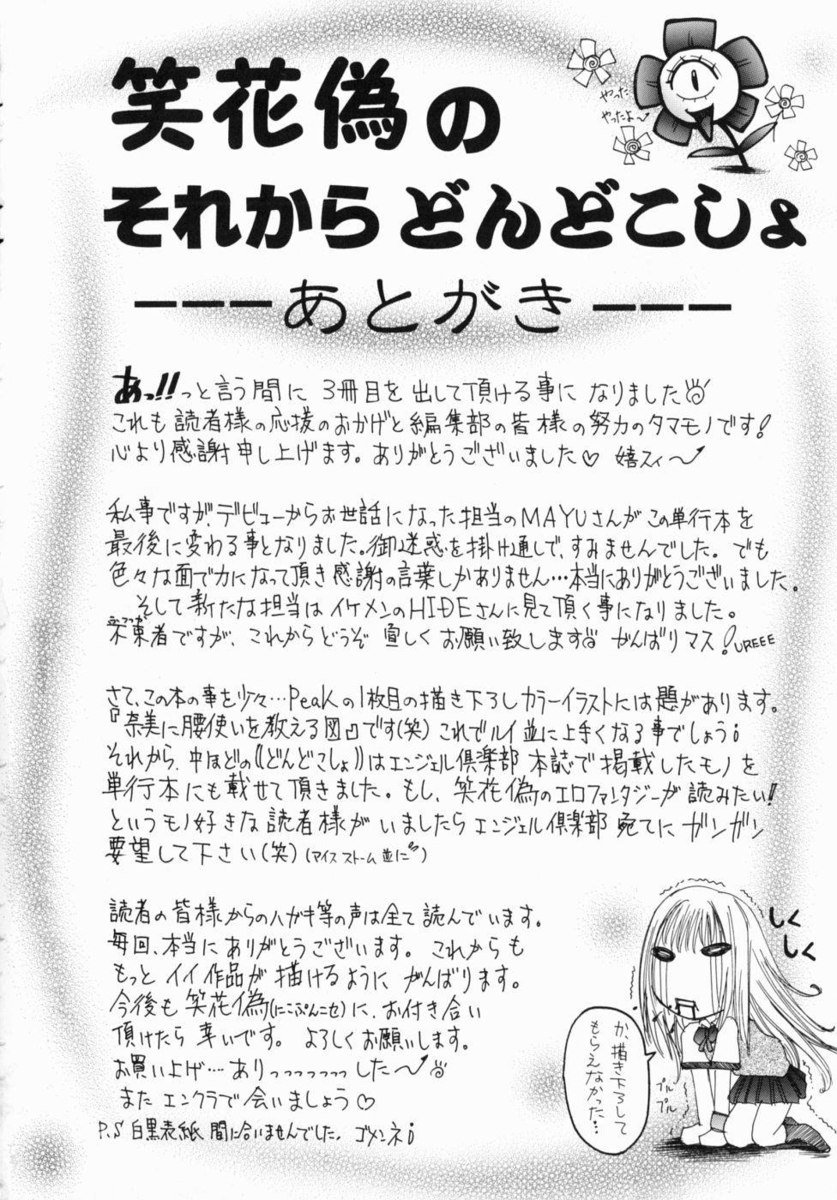 笑花偽の
やった
やったよ〜
それからどんどこしょ
---あとがき---
あっ!!っと言う間に 3冊目を出して頂ける事に なりました
これも読者様の応援のおかげと編集部の皆様の努力のタマモノです!
心より感謝申し上げます。ありがとうございました♡ 嬉スィ〜
私事ですが、デビューからお世話になった担当のMAYUさんがこの単行本を
最後に変わる事となりました。御迷惑を掛け通しで、すみませんでした。でも
色々な面で力になって頂き感謝の言葉しかありません…本当にありがとうございました。
そして新たな担当はイケメンのHIDEさんに見て頂く事になりました。
不束者ですが、これからどうぞ 宜しくお願い致します がんばりマス!UREEE
さて、この本の事を少々…Peakの1枚目の描き下ろしカラーイラストには題があります。
『奈美に腰使いを教える図』です(笑) これでルイ並に上手くなる事でしょう!
それから、中ほどの《どんどこしょ》はエンジェル倶楽部 本誌で掲載したモノを
単行本にも載せて頂きました。もし、笑花偽のエロファンタジーが読みたい!
というモノ好きな読者様がいましたらエンジェル倶楽部 宛てにガンガン
要望して下さい(笑)(マイス ストーム並に)
読者の皆様からのハガキ等の声は全て読んでいます。
毎回、本当にありがとうございます。これからも
もっとイイ作品が描けるようにがんばります。
今後も笑花偽(にこぷんニセ)に、お付き合い
頂けたら幸いです。よろしくお願いします。
お買い上げ…ありっっっっっっした〜
またエンクラで会いましょう♡
P.S 白黒表紙 間に合いませんでした。ゴメンネ!
しく
しく
か、描き下ろして
もらえなかった…
プル
プル